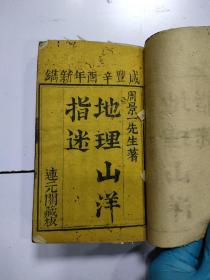 咸豐辛酉年新鐫
周景一先生著
地理山洋
指迷
連元閣藏板